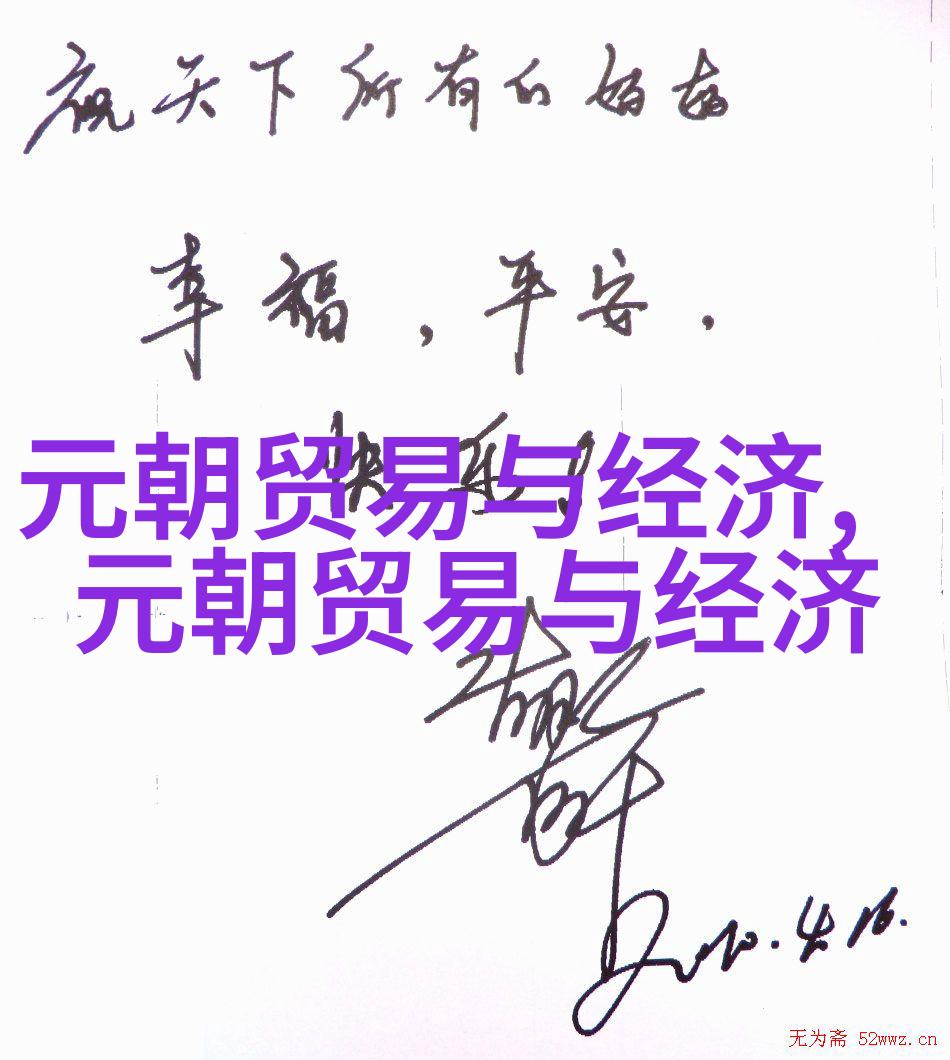 祝天下所有的妈妈
幸福，平安，
快乐！
元朝贸易与经济,
元朝贸易与经济
2010.4.16.
无为斋 52wwz.cn